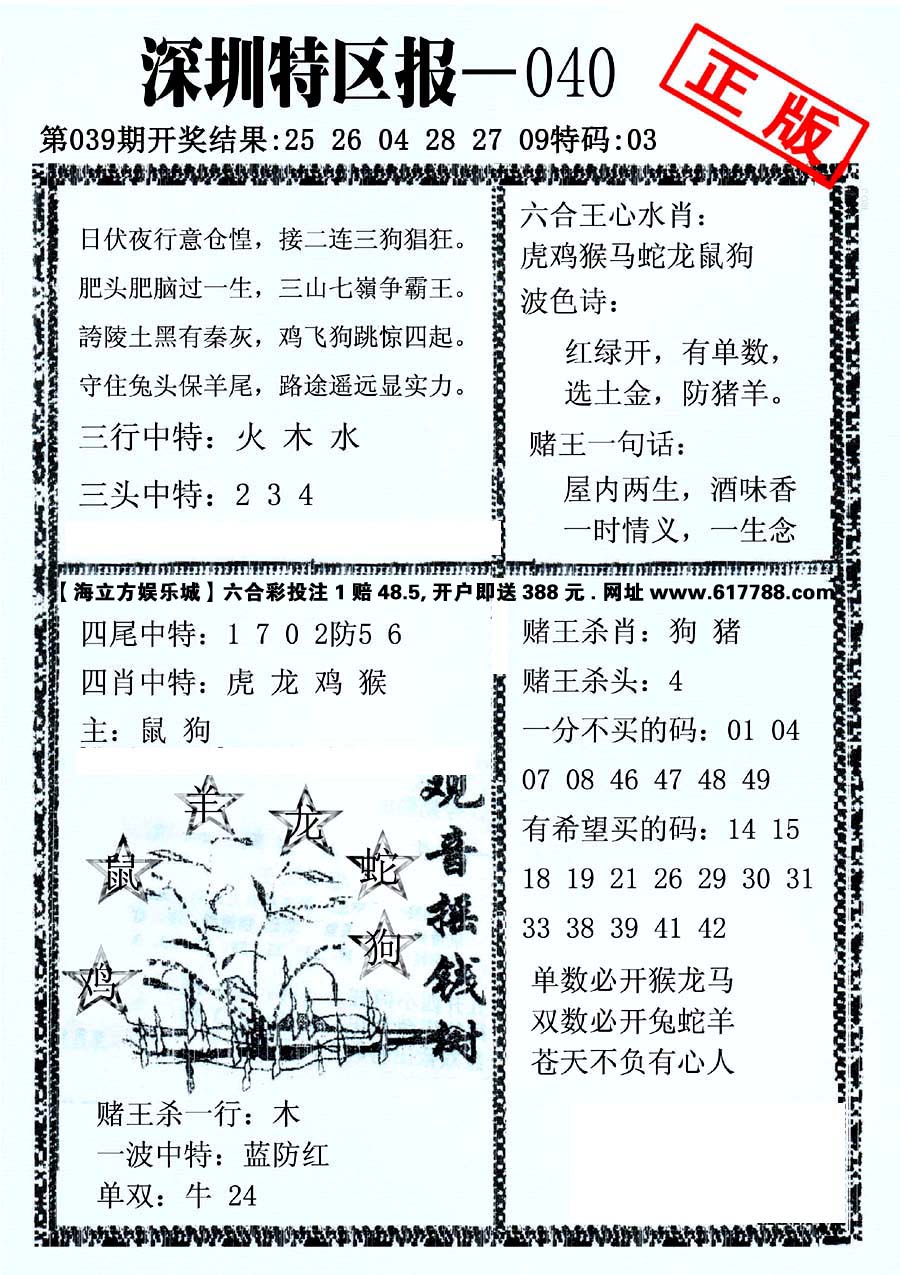 深圳特区报—040
正版
第039期开奖结果:25 26 04 28 27 09特码:03
日伏夜行意仓惶，接二连三狗猖狂。
肥头肥脑过一生，三山七嶺争霸王。
誇陵土黑有秦灰，鸡飞狗跳惊四起。
守住兔头保羊尾，路途遥远显实力。
三行中特：火 木 水
三头中特：2 3 4
六合王心水肖：
虎鸡猴马蛇龙鼠狗
波色诗：
红绿开，有单数，
选土金，防猪羊。
赌王一句话：
屋内两生，酒味香
一时情义，一生念
【海立方娱乐城】六合彩投注1赔48.5,开户即送388元.网址www.617788.com
四尾中特：1 7 0 2防5 6
四肖中特：虎 龙 鸡 猴
主：鼠 狗
羊
龙
鼠
蛇
狗
鸡
观音摇钱树
赌王杀一行：木
一波中特：蓝防红
单双：牛 24
赌王杀肖：狗 猪
赌王杀头：4
一分不买的码：01 04
07 08 46 47 48 49
有希望买的码：14 15
18 19 21 26 29 30 31
33 38 39 41 42
单数必开猴龙马
双数必开兔蛇羊
苍天不负有心人